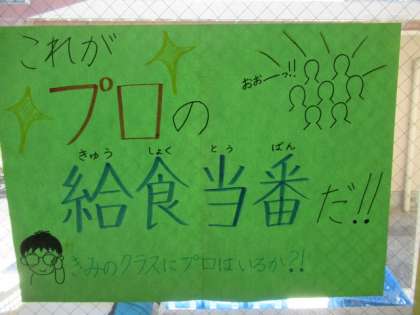 これが
プロの
おおーっ!!
きゅう しょく とう ばん
給食当番だ!!
きみのクラスにプロはいるか?!